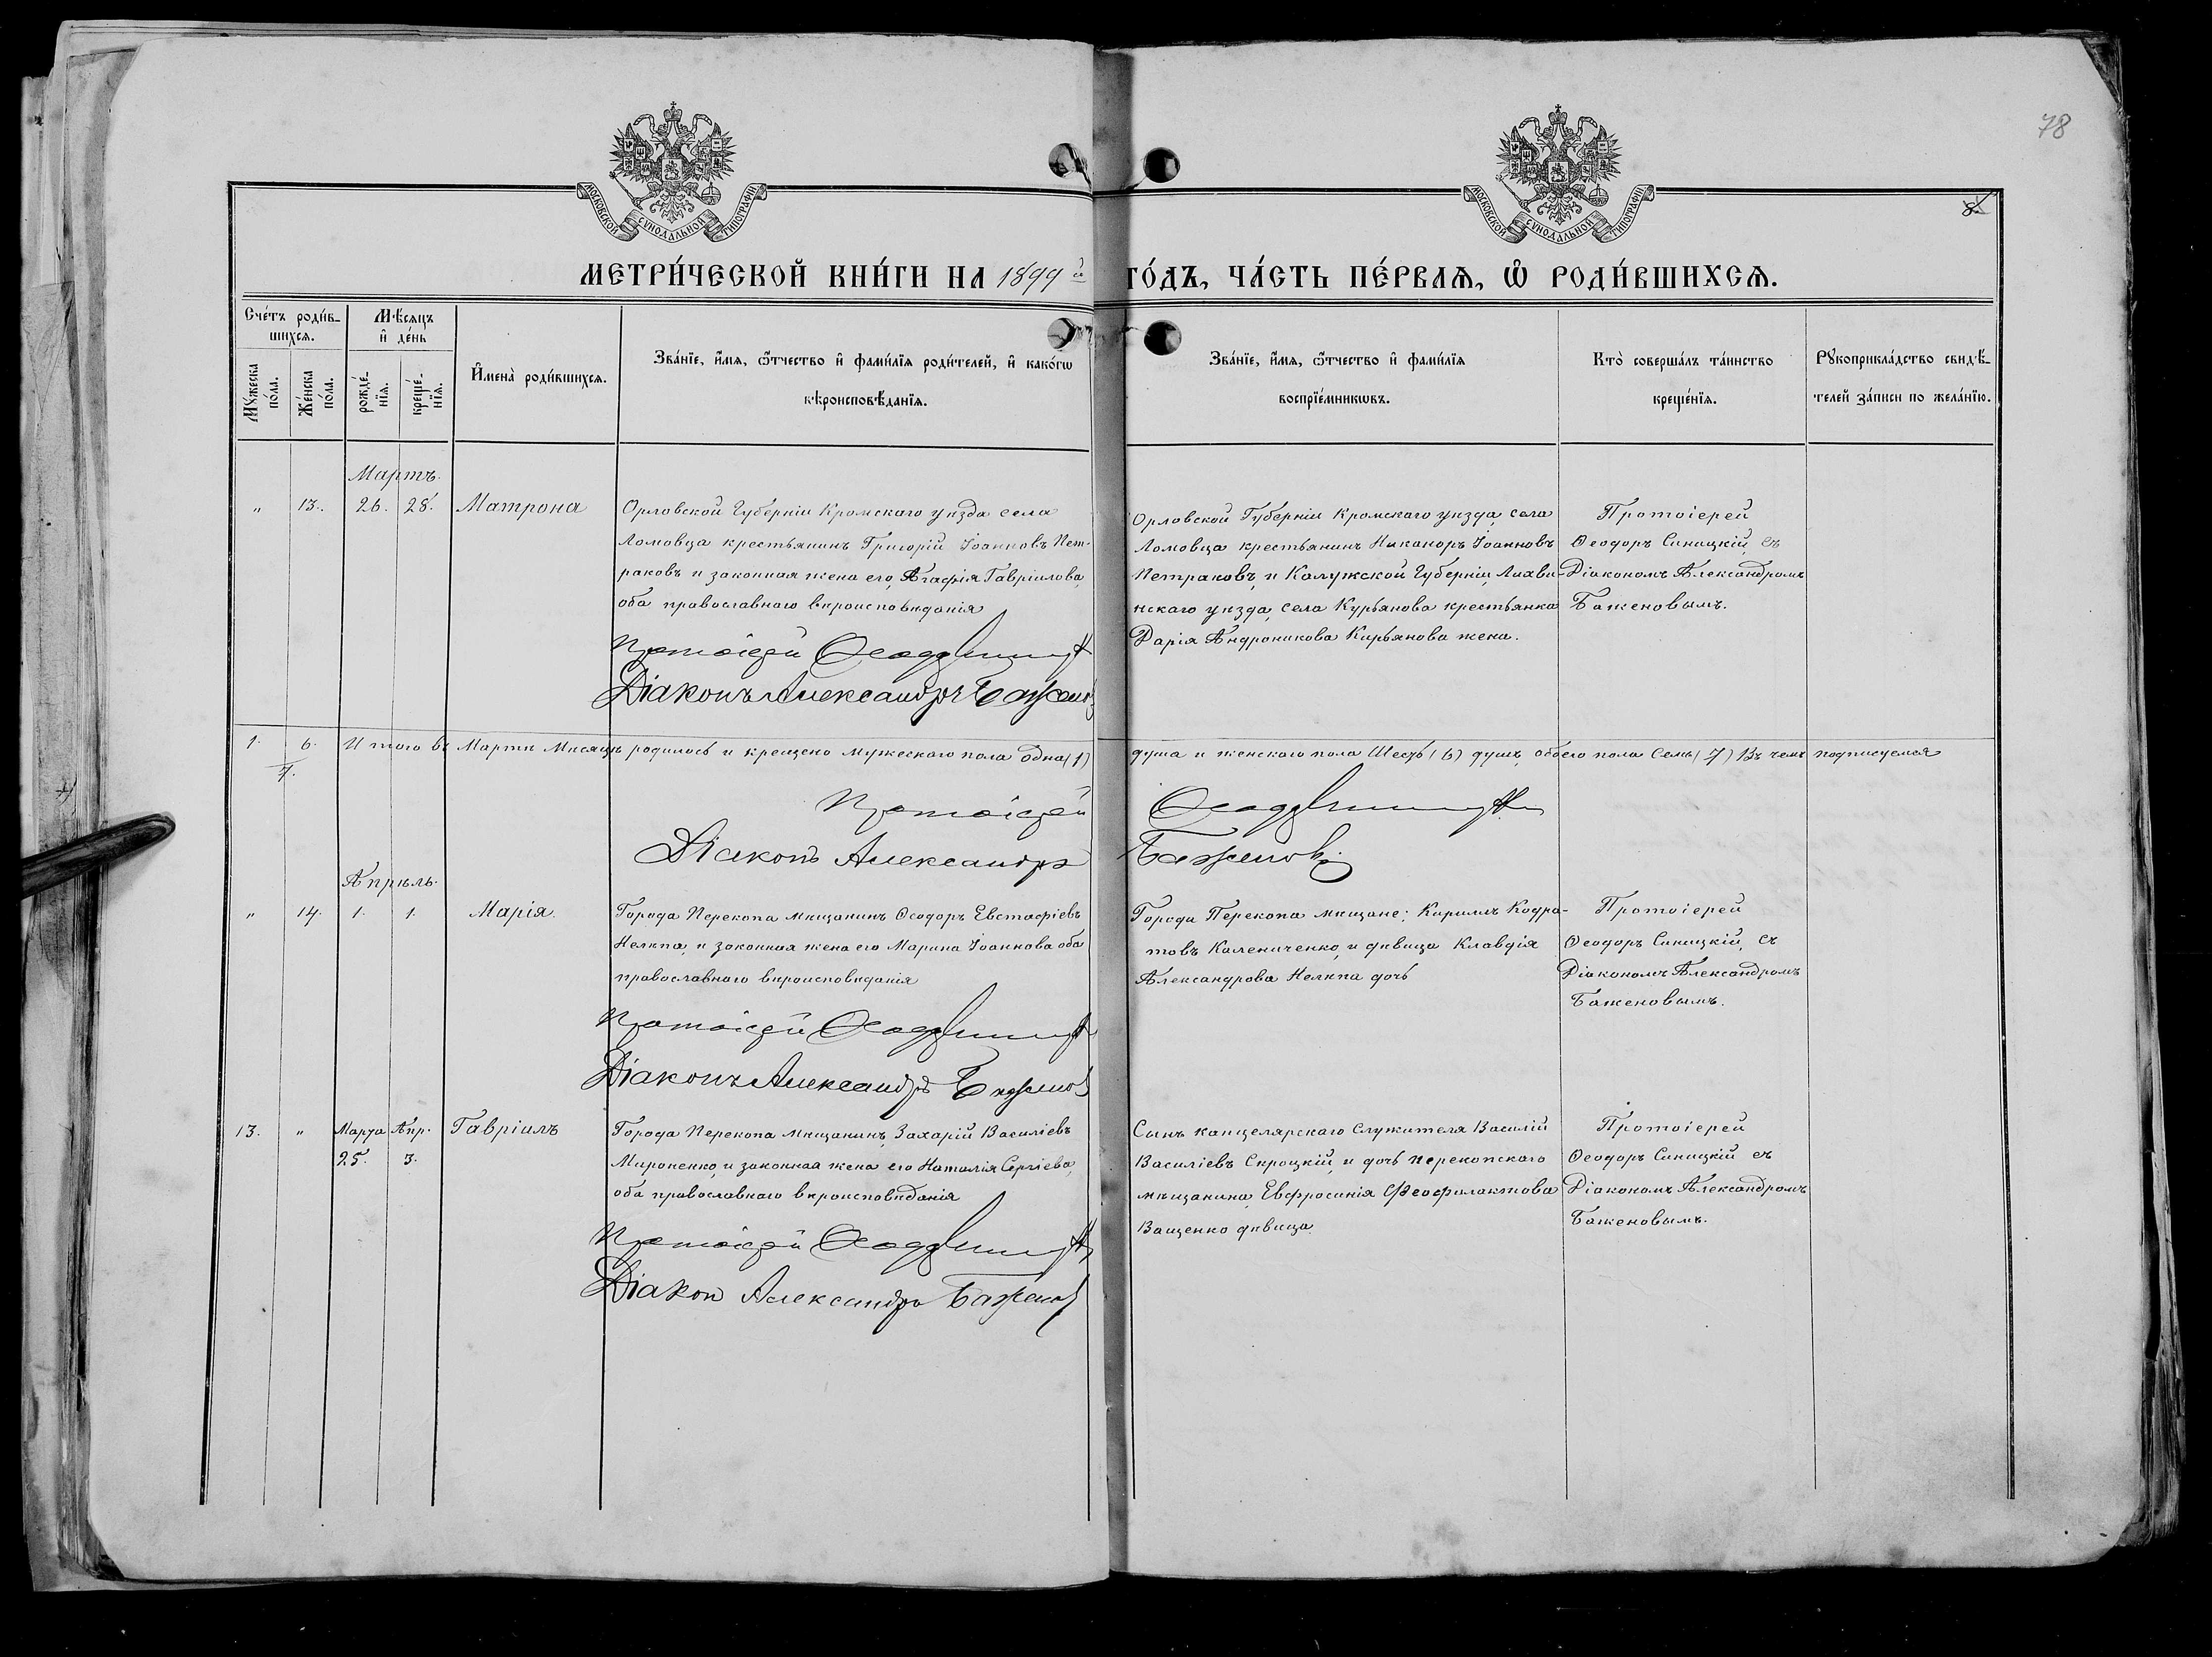 78
МОСКОВСКОЙ СУНОДАЛЬНОЙ ТИПОГРАФІИ
МОСКОВСКОЙ СУНОДАЛЬНОЙ ТИПОГРАФІИ
8
МЕТРИ́ЧЕСКОЙ КНИ́ГИ НА 1899й ГО́ДЪ, ЧА́СТЬ ПЕ́РВАѦ, Ѡ҆ РОДИ́ВШИХСѦ.
Сче́тъ роди́в-
шихсѧ.
Мꙋ́жеска по́ла.
Же́нска по́ла.
Мѣ́сѧцъ
и҆ де́нь
рожде́-
нїѧ.
креще́-
нїѧ.
И҆мена̀ роди́вшихсѧ.
Зва́нїе, и҆́мѧ, ѻ҆́тчество и҆ фами́лїѧ роди́телей, и҆ како́гѡ
вѣроисповѣ́данїѧ.
Зва́нїе, и҆́мѧ, ѻ҆́тчество и҆ фами́лїѧ
воспрїе́мникѡвъ.
Кто̀ соверша́лъ та́инство
креще́нїѧ.
Рꙋкоприкла́дство свидѣ́-
телей за́писи по жела́нїю.
Мартъ.
" 13. 26. 28. Матрона
Орловской Губерніи Кромскаго уѣзда села
Ломовца крестьянинъ Григорій Іоанновъ Пет-
раковъ и законная жена его, Агафія Гавріилова
оба православнаго вѣроисповѣданія
Протоіерей Ѳеодоръ Синицкій
Діаконъ Александръ Баженовъ
Орловской Губерніи Кромскаго уѣзда, села
Ломовца крестьянинъ Никаноръ Іоанновъ
Петраковъ, и Калужской Губерніи, Лихви-
нскаго уѣзда, села Курьянова крестьянка
Дарія Андроникова Кирьянова жена.
Протоіерей
Ѳеодоръ Синицкій, съ
Діакономъ Александромъ
Баженовымъ.
1. 6. Итого въ Мартѣ Мѣсяцѣ родилось и крещено мужескаго пола одна (1) душа и женскаго пола Шесть (6) душъ, обоего пола Семь (7) Въ чемъ подписуемся
7.
Протоіерей Ѳеодоръ Синицкій
Діаконъ Александръ Баженовъ
Апрѣль.
" 14. 1. 1. Марія.
Города Перекопа мѣщанинъ Ѳеодоръ Евстафіевъ
Нелѣпа, и законная жена его Марина Іоаннова оба
православнаго вѣроисповѣданія
Протоіерей Ѳеодоръ Синицкій
Діаконъ Александръ Баженовъ
Города Перекопа мѣщане: Кириллъ Кодра-
товъ Калениченко, и дѣвица Клавдія
Александрова Нелѣпа дочь
Протоіерей
Ѳеодоръ Синицкій, съ
Діакономъ Александромъ
Баженовымъ.
13. " Марта 25. Апр. 3. Гавріилъ
Города Перекопа мѣщанинъ, Захарій Василіевъ
Мироненко, и законная жена его Наталія Сергіева,
оба православнаго вѣроисповѣданія
Протоіерей Ѳеодоръ Синицкій
Діакон Александръ Баженовъ
Сынъ канцелярскаго служителя Василій
Василіевъ Скроцкій, и дочь перекопскаго
мѣщанина, Евфросинія Феофилактова
Ващенко дѣвица.
Протоіерей
Ѳеодоръ Синицкій съ
Діакономъ Александромъ
Баженовымъ.